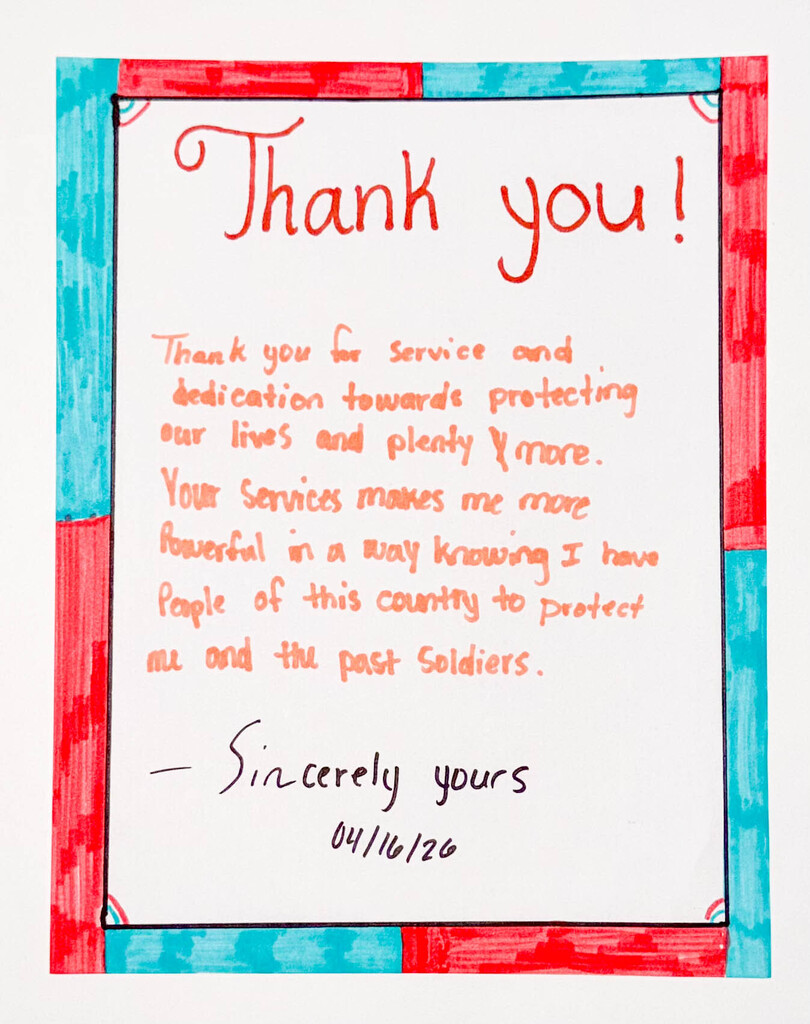 Thank you!
Thank you for service and
dedication towards protecting
our lives and plenty more.
Your services makes me more
Powerful in a way knowing I have
People of this country to protect
me and the past soldiers.
— Sincerely yours
04/16/26